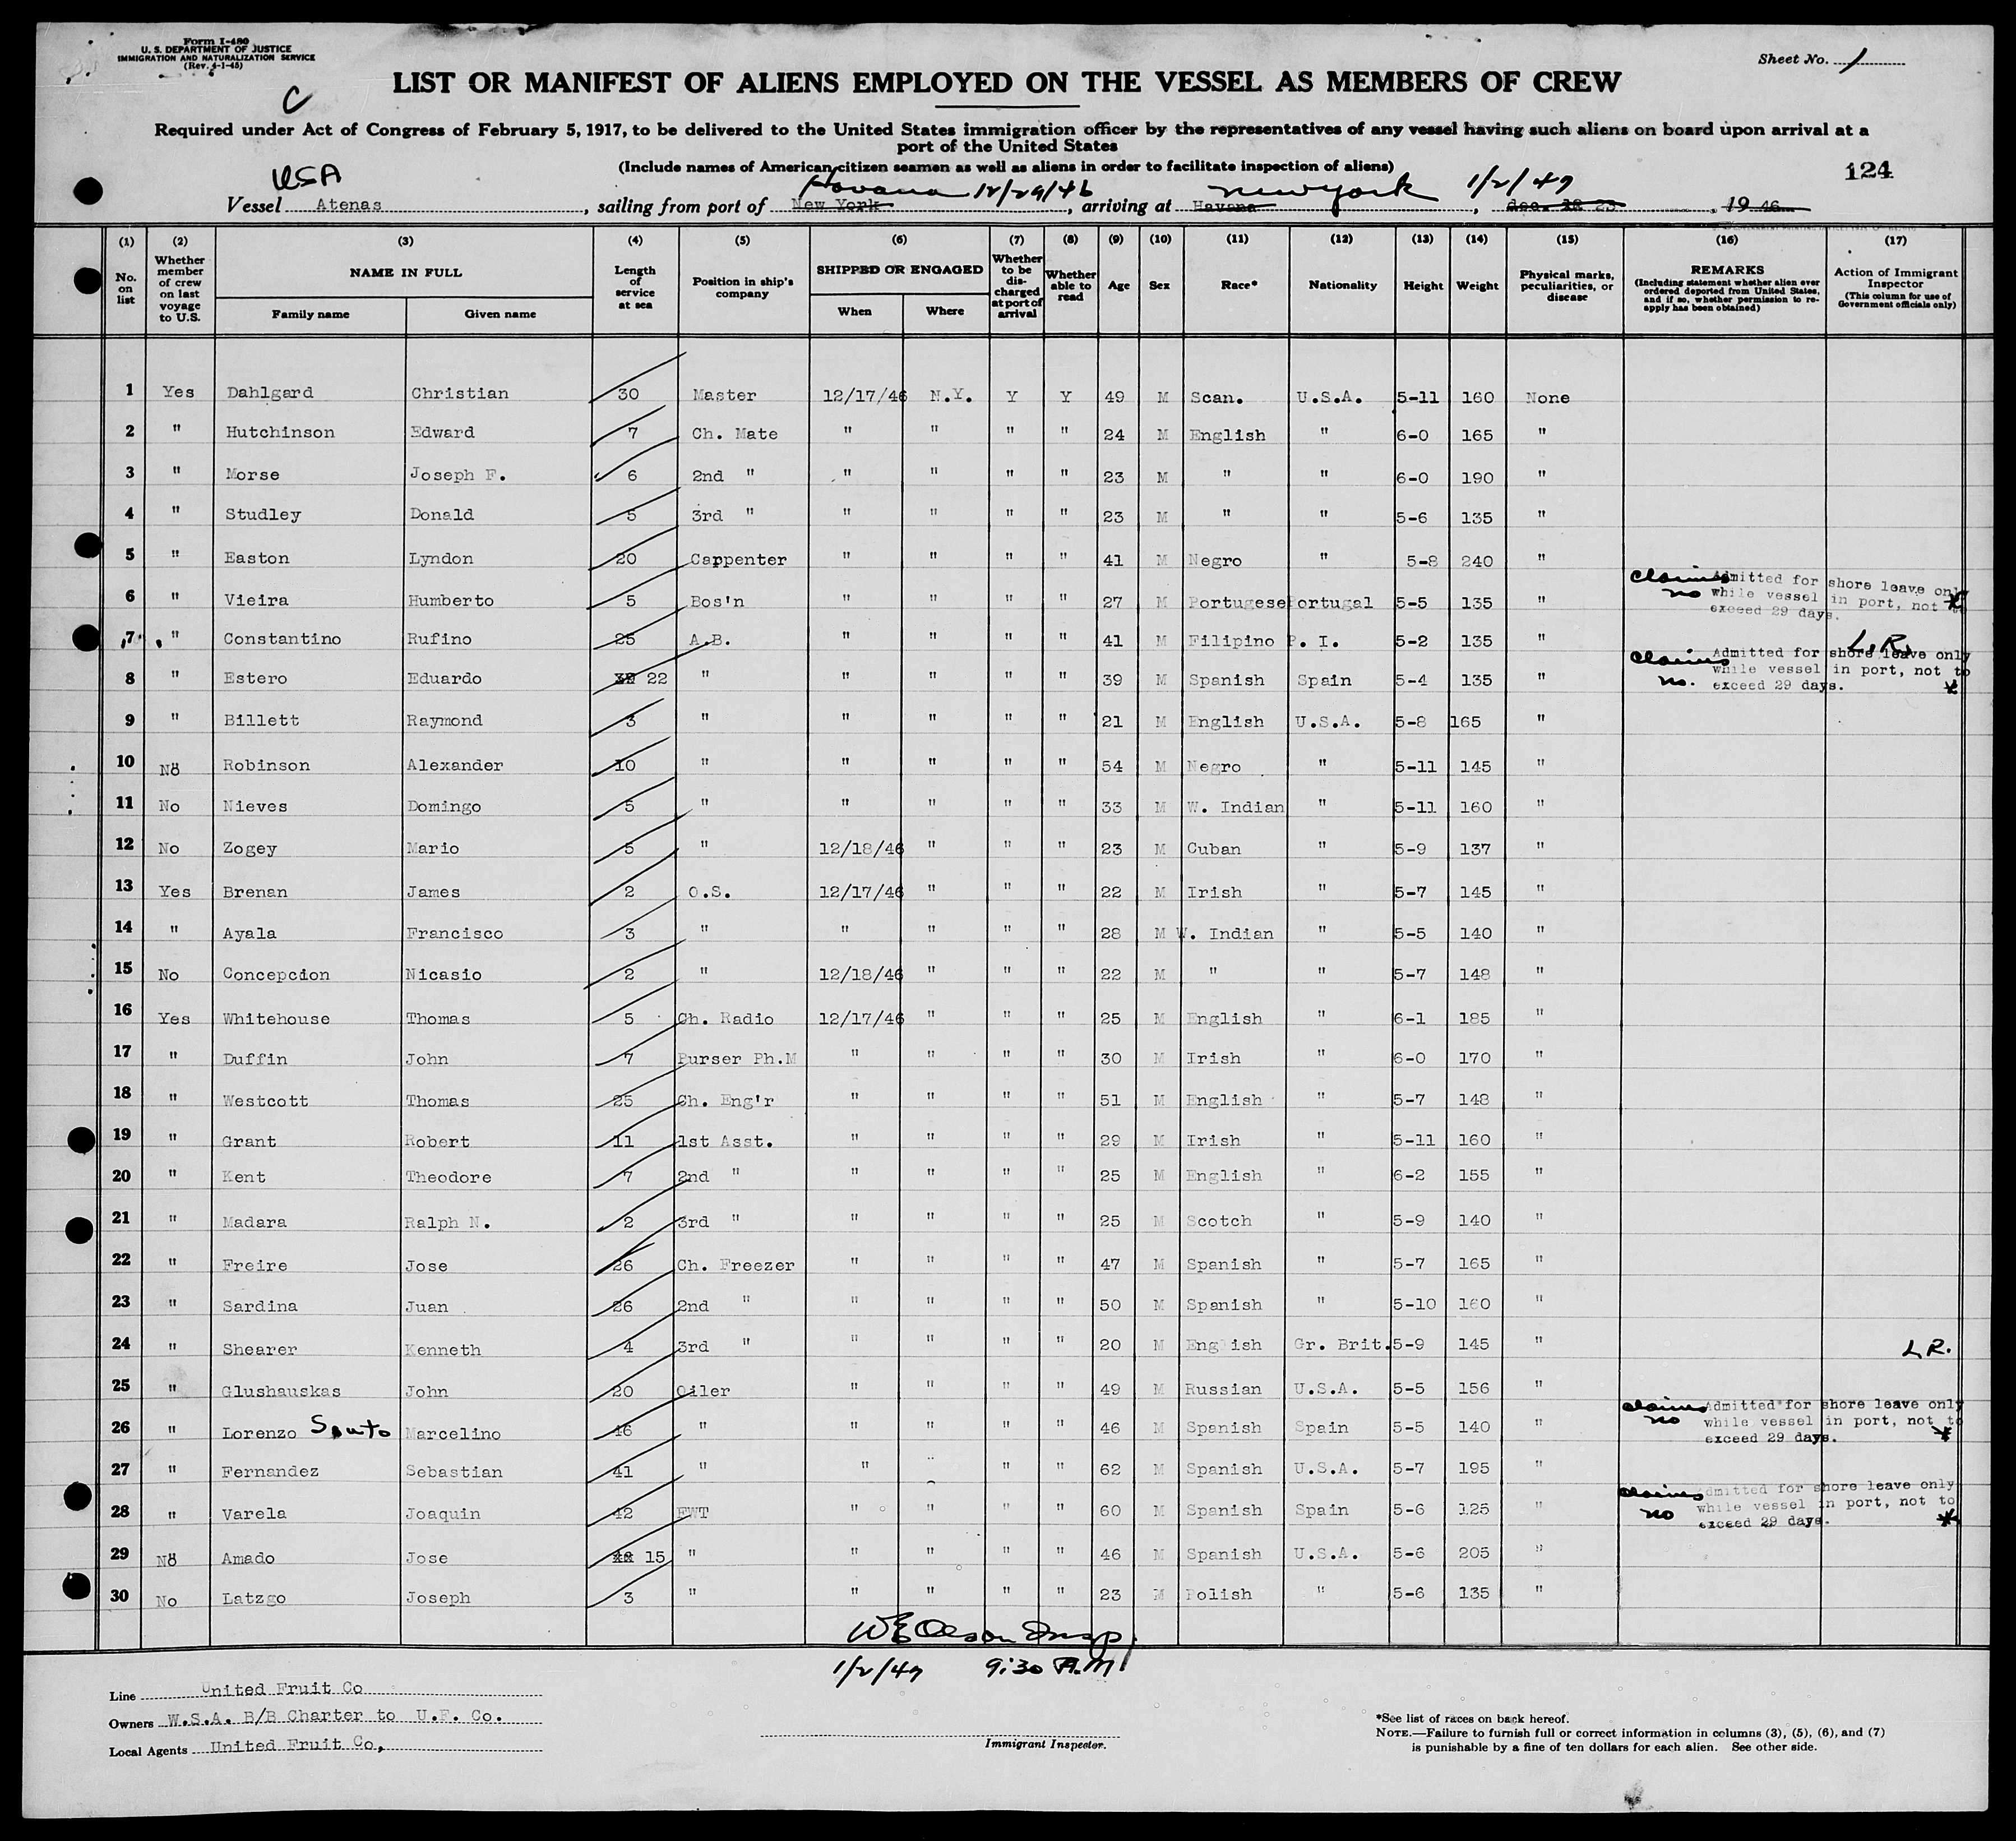 Form I-480
U. S. DEPARTMENT OF JUSTICE
IMMIGRATION AND NATURALIZATION SERVICE
(Rev. 4-1-45)
Sheet No. 1
LIST OR MANIFEST OF ALIENS EMPLOYED ON THE VESSEL AS MEMBERS OF CREW
C
Required under Act of Congress of February 5, 1917, to be delivered to the United States immigration officer by the representatives of any vessel having such aliens on board upon arrival at a
port of the United States
(Include names of American citizen seamen as well as aliens in order to facilitate inspection of aliens)
124
USA Havana 12/29/46 New York 1/2/47
Vessel Atenas, sailing from port of New York, arriving at Havana, dec. 23, 19 46
(1) (2) (3) (4) (5) (6) (7) (8) (9) (10) (11) (12) (13) (14) (15) (16) (17)
No. on list Whether member of crew on last voyage to U.S. NAME IN FULL Family name Given name Length of service at sea Position in ship's company SHIPPED OR ENGAGED When Where Whether to be discharged at port of arrival Whether able to read Age Sex Race* Nationality Height Weight Physical marks, peculiarities, or disease REMARKS (Including statement whether alien ever ordered deported from United States, and if so, whether permission to reapply has been obtained) Action of Immigrant Inspector (This column for use of Government officials only)
1 Yes Dahlgard Christian 30 Master 12/17/46 N.Y. Y Y 49 M Scan. U.S.A. 5-11 160 None
2 " Hutchinson Edward 7 Ch. Mate " " " " 24 M English " 6-0 165 "
3 " Morse Joseph F. 6 2nd " " " " " 23 M " " 6-0 190 "
4 " Studley Donald 5 3rd " " " " " 23 M " " 5-6 135 "
5 " Easton Lyndon 20 Carpenter " " " " 41 M Negro " 5-8 240 "
6 " Vieira Humberto 5 Bos'n " " " " 27 M Portugese Portugal 5-5 135 " claims no Admitted for shore leave only while vessel in port, not to exceed 29 days.
7 " Constantino Rufino 25 A.B. " " " " 41 M Filipino P. I. 5-2 135 " L.R.
8 " Estero Eduardo 22 " " " " " 39 M Spanish Spain 5-4 135 " claims no. Admitted for shore leave only while vessel in port, not to exceed 29 days.
9 " Billett Raymond 3 " " " " " 21 M English U.S.A. 5-8 165 "
10 No Robinson Alexander 10 " " " " " 54 M Negro " 5-11 145 "
11 No Nieves Domingo 5 " " " " " 33 M W. Indian " 5-11 160 "
12 No Zogey Mario 5 " 12/18/46 " " " 23 M Cuban " 5-9 137 "
13 Yes Brenan James 2 O.S. 12/17/46 " " " 22 M Irish " 5-7 145 "
14 " Ayala Francisco 3 " " " " " 28 M W. Indian " 5-5 140 "
15 No Concepcion Nicasio 2 " 12/18/46 " " " 22 M " " 5-7 148 "
16 Yes Whitehouse Thomas 5 Ch. Radio 12/17/46 " " " 25 M English " 6-1 185 "
17 " Duffin John 7 Purser Ph.M " " " " 30 M Irish " 6-0 170 "
18 " Westcott Thomas 25 Ch. Eng'r " " " " 51 M English " 5-7 148 "
19 " Grant Robert 11 1st Asst. " " " " 29 M Irish " 5-11 160 "
20 " Kent Theodore 7 2nd " " " " " 25 M English " 6-2 155 "
21 " Madara Ralph N. 2 3rd " " " " " 25 M Scotch " 5-9 140 "
22 " Freire Jose 26 Ch. Freezer " " " " 47 M Spanish " 5-7 165 "
23 " Sardina Juan 26 2nd " " " " " 50 M Spanish " 5-10 160 "
24 " Shearer Kenneth 4 3rd " " " " " 20 M English Gr. Brit. 5-9 145 " L.R.
25 " Glushauskas John 20 Oiler " " " " 49 M Russian U.S.A. 5-5 156 "
26 " Lorenzo Souto Marcelino 46 " " " " " 46 M Spanish Spain 5-5 140 " claims no Admitted for shore leave only while vessel in port, not to exceed 29 days.
27 " Fernandez Sebastian 41 " " " " 62 M Spanish U.S.A. 5-7 195 "
28 " Varela Joaquin 42 FWT " " " " 60 M Spanish Spain 5-6 125 " claims no Admitted for shore leave only while vessel in port, not to exceed 29 days.
29 No Amado Jose 15 " " " " " 46 M Spanish U.S.A. 5-6 205 "
30 No Latzgo Joseph 3 " " " " " 23 M Polish " 5-6 135 "
W E Olsson Insp.
1/2/47 9:30 A.M
Line United Fruit Co
Owners W.S.A. B/B Charter to U.F. Co.
Local Agents United Fruit Co,
Immigrant Inspector.
*See list of races on back hereof.
NOTE.—Failure to furnish full or correct information in columns (3), (5), (6), and (7)
is punishable by a fine of ten dollars for each alien. See other side.